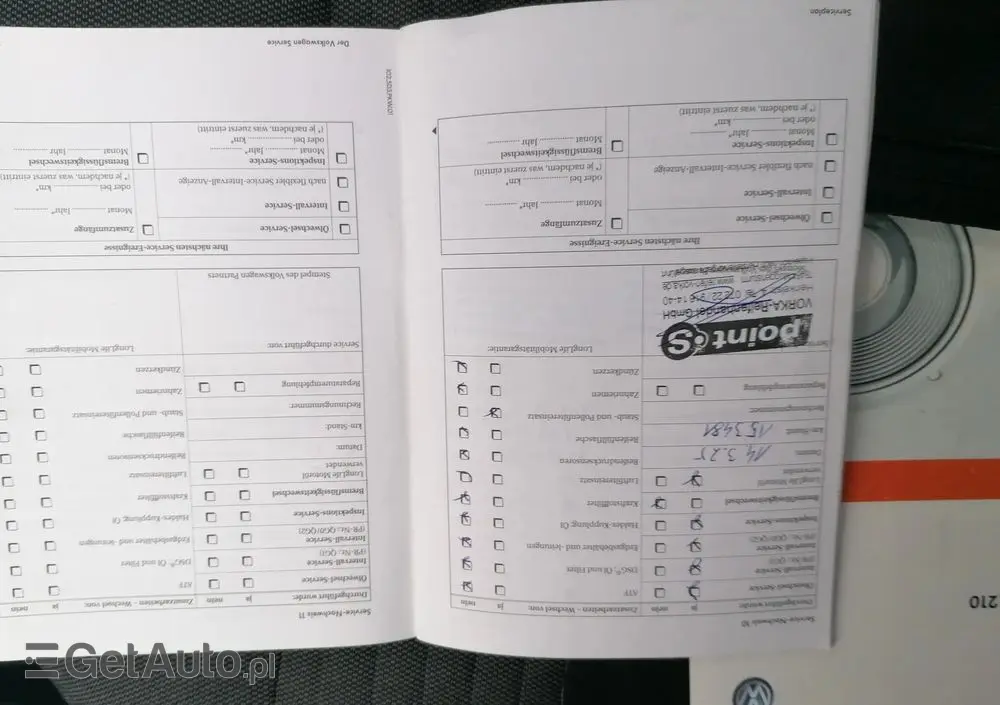 Service-Nachweis 10
Durchgeführt wurde: ja nein
Ölwechsel-Service
Intervall-Service
(PR-Nr.: QG1)
Intervall-Service
(PR-Nr. QG0/QG2)
Inspektions-Service
Bremsflüssigkeitswechsel
LongLife Motoröl
verwendet
Datum: 14.3.25
km-Stand: 153481
Rechnungsnummer:
Reparaturempfehlung
Zusatzarbeiten – Wechsel von: ja nein
ATF
DSG®, Öl und Filter
Erdgasbehälter und -leitungen
Haldex-Kupplung Öl
Kraftstofffilter
Luftfiltereinsatz
Reifendrucksensoren
Reifenfüllflasche
Staub- und Pollenfiltereinsatz
Zahnriemen
Zündkerzen
LongLife Mobilitätsgarantie:
point S
VORKA-Reifenhandel GmbH
Ihre nächsten Service-Ereignisse
Ölwechsel-Service
Intervall-Service
nach flexibler Service-Intervall-Anzeige
Inspektions-Service
Monat Jahr*
oder bei km*
(* je nachdem, was zuerst eintritt)
Zusatzumfänge
Monat Jahr*
oder bei km*
(* je nachdem, was zuerst eintritt)
Bremsflüssigkeitswechsel
Monat Jahr
Serviceplan
Service-Nachweis 11
Durchgeführt wurde: ja nein
Ölwechsel-Service
Intervall-Service
(PR-Nr.: QG1)
Intervall-Service
(PR-Nr. QG0/QG2)
Inspektions-Service
Bremsflüssigkeitswechsel
LongLife Motoröl
verwendet
Datum:
km-Stand:
Rechnungsnummer:
Reparaturempfehlung
Service durchgeführt von:
Stempel des Volkswagen Partners
Zusatzarbeiten – Wechsel von: ja nein
ATF
DSG® Öl und Filter
Erdgasbehälter und -leitungen
Haldex-Kupplung Öl
Kraftstofffilter
Luftfiltereinsatz
Reifendrucksensoren
Reifenfüllflasche
Staub- und Pollenfiltereinsatz
Zahnriemen
Zündkerzen
LongLife Mobilitätsgarantie:
Ihre nächsten Service-Ereignisse
Ölwechsel-Service
Intervall-Service
nach flexibler Service-Intervall-Anzeige
Inspektions-Service
Monat Jahr*
oder bei km*
(* je nachdem, was zuerst eintritt)
Zusatzumfänge
Monat Jahr*
oder bei km*
(* je nachdem, was zuerst eintritt)
Bremsflüssigkeitswechsel
Monat Jahr
Der Volkswagen Service
210
GetAuto.pl